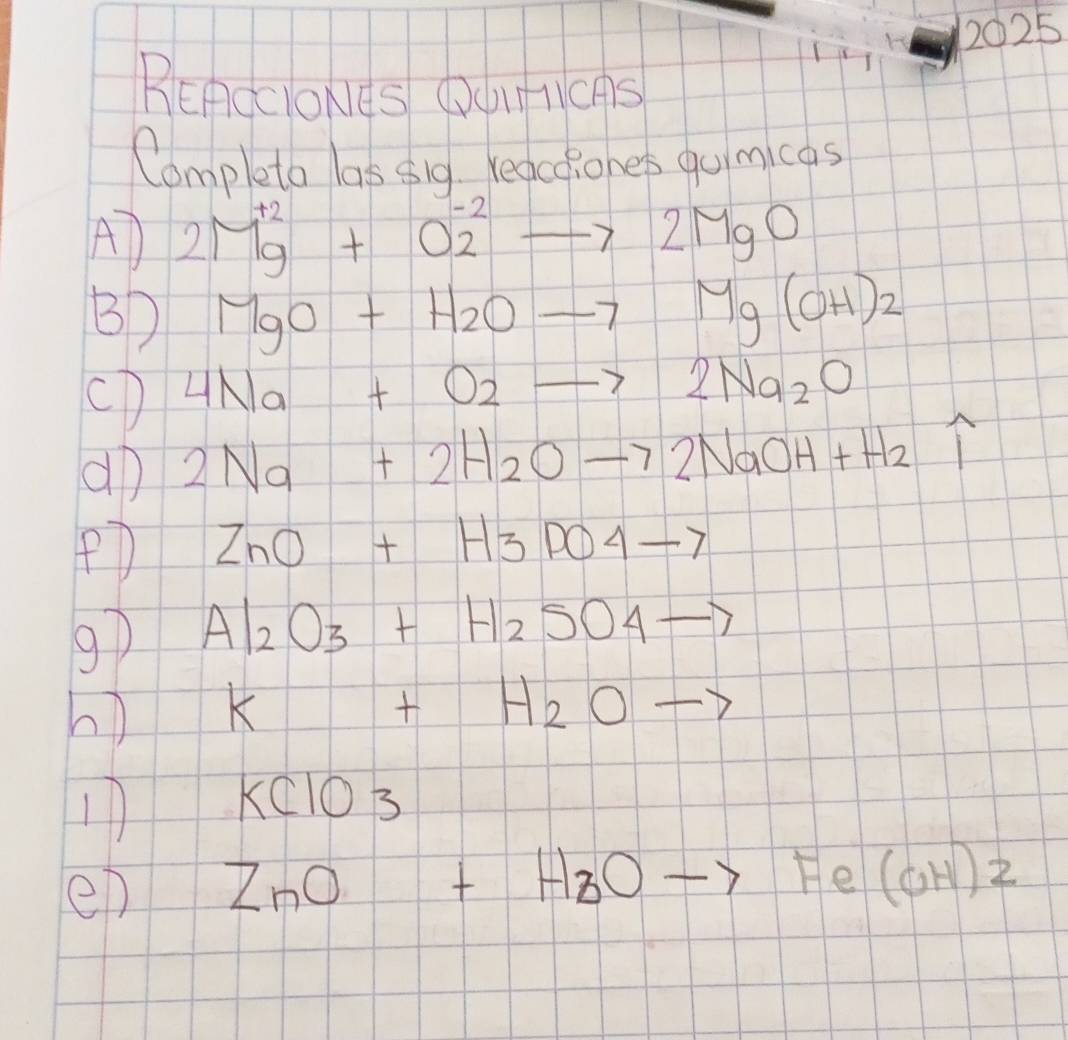 2025
REACCIONES QUIMICAS
Completa las sig. reacciones quimicas
A) 2Mg+2 + O2-2 → 2MgO
B) MgO + H2O → Mg(OH)2
C) 4Na + O2 → 2Na2O
d) 2Na + 2H2O → 2NaOH + H2 ↑
f) ZnO + H3PO4 →
g) Al2O3 + H2SO4 →
h) K + H2O →
i) KClO3
e) ZnO + H3O → Fe(OH)2